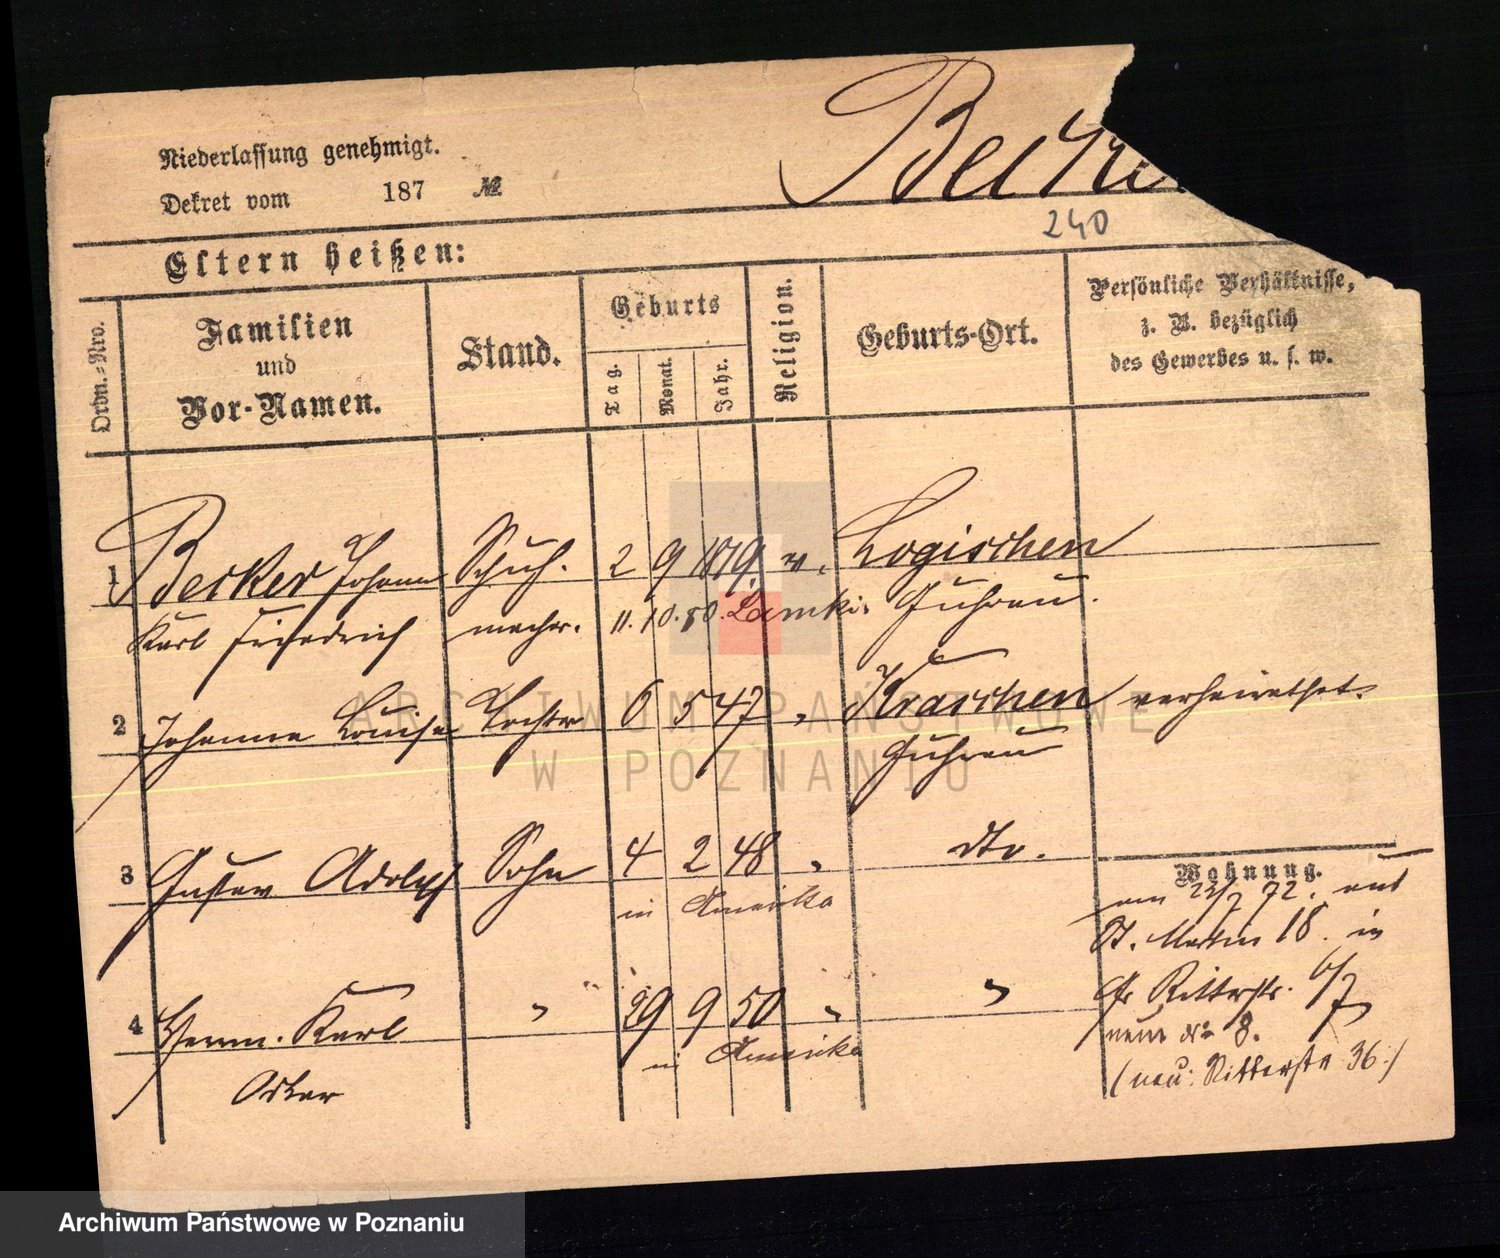 Niederlassung genehmigt.
Dekret vom 187 №
Becke
240
Eltern heißen:
Ordn.-Nro.
Familien
und
Vor-Namen.
Stand.
Geburts
Tag.
Monat.
Jahr.
Religion.
Geburts-Ort.
Persönliche Verhältnisse,
z. B. bezüglich
des Gewerbes u. s. w.
1 Becker Johann Schuh- 2 9 1819. Logischen
Karl Friedrich macher. 11. 10. 80. Guhrau.
2 Johanna Louise Tochter 6 5 47 " Kraschen verheirathet.
Guhrau
3 Gustav Adolph Sohn 4 2 48 " dto.
in Amerika
4 Herrm. Karl " 29 9 50 " "
Oskar
in Amerika
Wohnung.
am 22/7 72. aus
St. Martin 18. in
Gr Ritterstr. 6/7
neue № 8.
(neu: Ritterstr 36.)
ARCHIWUM PAŃSTWOWE
W POZNANIU
Archiwum Państwowe w Poznaniu